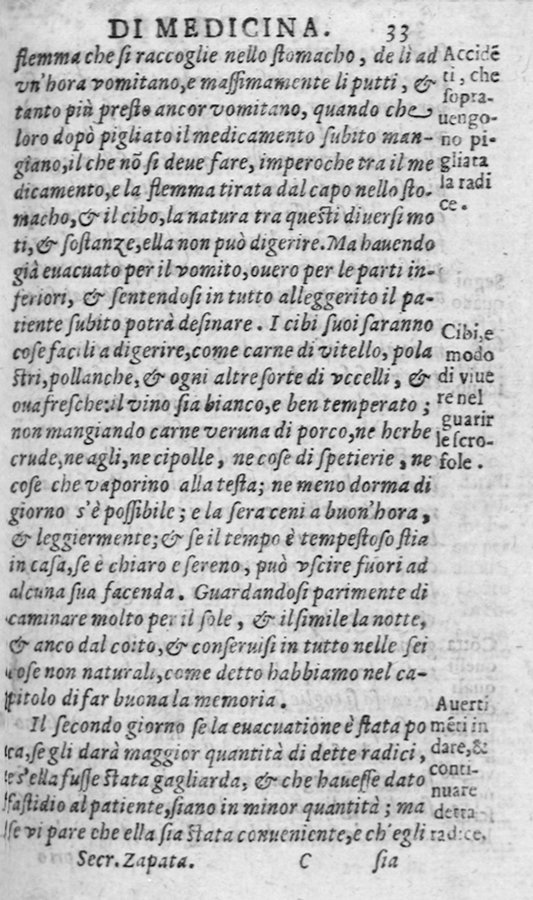 DI MEDICINA. 33
flemma che si raccoglie nello stomacho, de li ad
vn'hora vomitano, e massimamente li putti, &
tanto più presto ancor vomitano, quando che
loro dopò pigliato il medicamento subito man-
giano, il che nõ si deue fare, imperoche tra il me
dicamento, e la flemma tirata dal capo nello sto-
macho, & il cibo, la natura tra questi diuersi mo
ti, & sostanze, ella non può digerire. Ma hauendo
già euacuato per il vomito, ouero per le parti in-
feriori, & sentendosi in tutto alleggerito il pa-
tiente subito potrà desinare. I cibi suoi saranno
cose facili a digerire, come carne di vitello, pola
stri, pollanche, & ogni altre sorte di vccelli, &
oua fresche: il vino sia bianco, e ben temperato;
non mangiando carne veruna di porco, ne herbe
crude, ne agli, ne cipolle, ne cose di spetierie, ne
cose che vaporino alla testa; ne meno dorma di
giorno s'è possibile; e la sera ceni a buon'hora,
& leggiermente; & se il tempo è tempestoso stia
in casa, se è chiaro e sereno, può vscire fuori ad
alcuna sua facenda. Guardandosi parimente di
caminare molto per il sole, & il simile la notte,
& anco dal coito, & conseruisi in tutto nelle sei
cose non naturali, come detto habbiamo nel ca-
pitolo di far buona la memoria.
Il secondo giorno se la euacuatione è stata po
ca, se gli darà maggior quantità di dette radici,
e s'ella fusse stata gagliarda, & che hauesse dato
fastidio al patiente, siano in minor quantità; ma
se vi pare che ella sia stata conueniente, e ch'egli
Secr. Zapata. C sia
Accidẽ
ti, che
sopra-
uengo-
no pi-
gliata
la radi
ce.
Cibi, e
modo
di viue
re nel
guarir
le scro-
fole.
Auerti
mẽti in
dare, &
conti-
nuare
detta
radice.